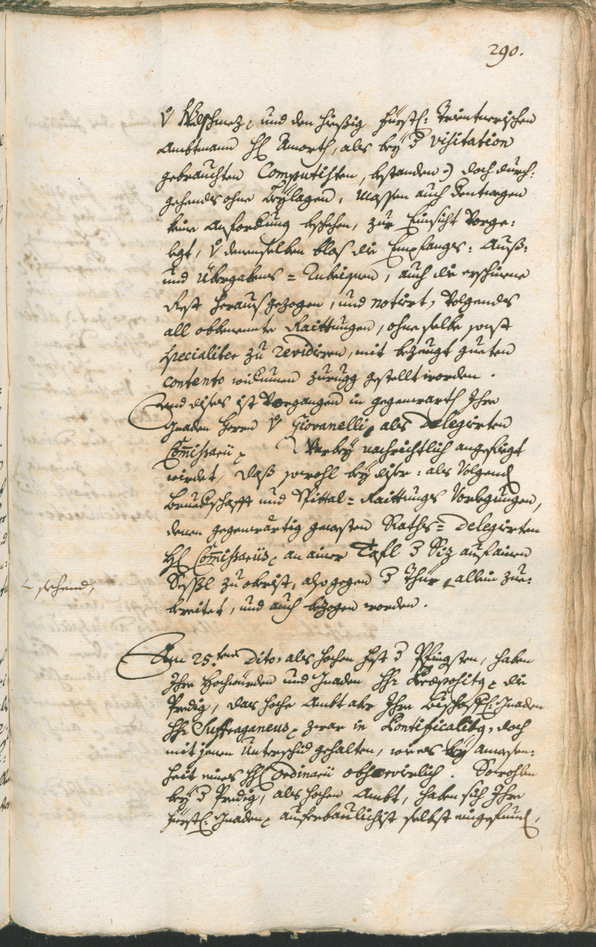 290.
und den hießig Fürstl: Trienterischen
Ambtmann H: Amorth, als bey d visitation
gebrauchten Computisten, bestanden :) doch durch-
gehends ohne Beylagen, massen auch dentwegen
keine Anforderung beschehen, zur Einsicht vorge-
legt, v denenselben blos die Empfangs: Auß:
und Übergabens = auch die
Rest herausgezogen, und notirt, volgends
all obbenente Raittungen, ohne selbe sonst
specialiter zu revidiren, mit bezeugt gueten
contento widerumen zurugg gestellt worden.
Und dises ist vorgangen in gegenwarth Ihro
Gnaden Herrn v Giovanelli, als Delegirten
Commissarii, Warbey nachrichtlich angefüegt
wirdet, daß sowohl bey diser: als volgend
Bruderschafft und Spittal = Raittungs Vorlegungen,
denen gegenwärtig gewesten Raths = Delegirten
H: Commissarius, an ainer Tafl d Siz auf ainem
Sessl zu obrist, also gegen d Thür sehend, allein zue-
bereitet, und auch bezogen worden.
Am 25.ten Dito, als hochen Fest d Pfingsten, haben
Ihro Hochwürden und Gnaden H: Præpositus, die
Predig, das hoche Ambt aber Ihro Bischöfl: Gnaden
H: Suffraganeus, zwar in Pontificalibus, doch
mit jenen Unterschid gehalten, wie es bey Anwesen-
heit eines H: Ordinarii observirlich. Sowohlen
bey d Predig, als hochen Ambt, haben sich Ihro
Fürstl: Gnaden, auferbaulichist selbst eingefund,